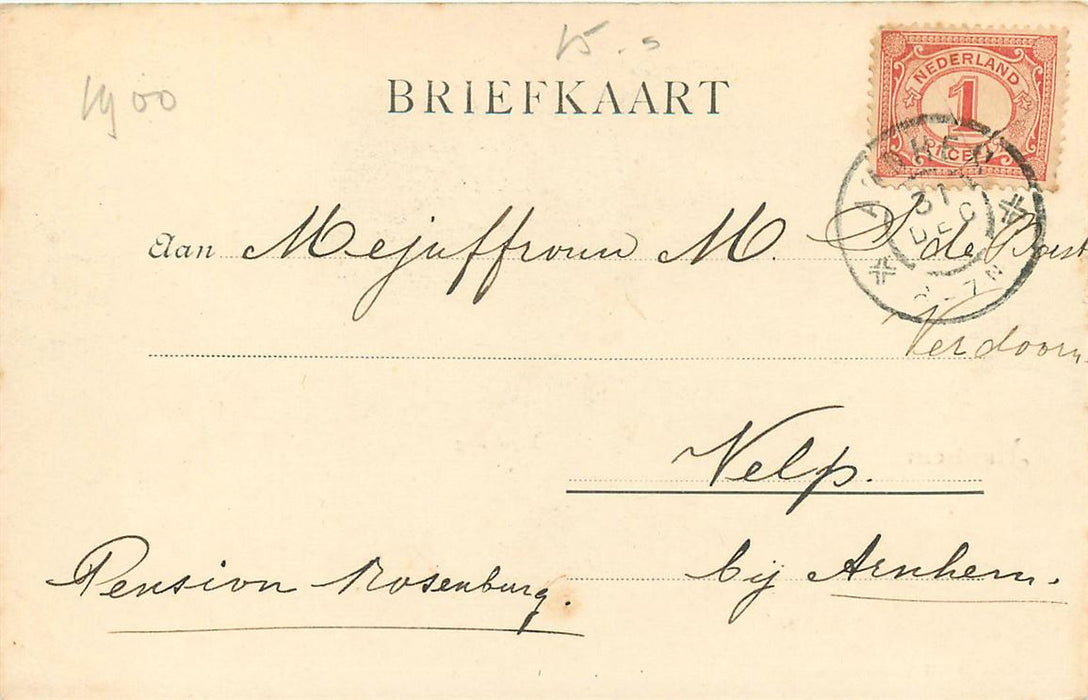 15.-
1900
BRIEFKAART
NEDERLAND
1
CENT
ARNHEM
31
DEC
Aan Mejuffrouw M. S. de Bast
Verdoorn
Velp.
Pension Rosenburg.
bij Arnhem.